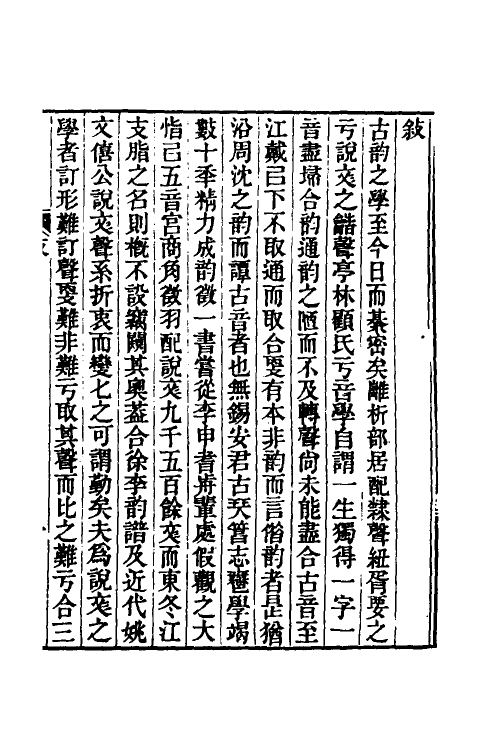 敍
古韵之學至今日而綦密矣離析部居配隸聲紐胥要之
亏說文之諧聲亭林顧氏亏音學自謂一生獨得一字一
音盡埽合韵通韵之陋而不及轉聲尚未能盡合古音至
江戴已下不取通而取合要有本非韵而言俗韵者是猶
沿周沈之韵而譚古音者也無錫安君古琴篤志嗜學竭
數十秊精力成韵徵一書嘗從李申耆所輩處假觀之大
恉已五音宮商角徵羽配說文九千五百餘文而東冬江
支脂之名則槪不設竊闚其奧葢合徐李韵譜及近代姚
文僖公說文聲系折衷而變化之可謂勤矣夫爲說文之
學者訂形難訂聲要難非難亏取其聲而比之難亏合三